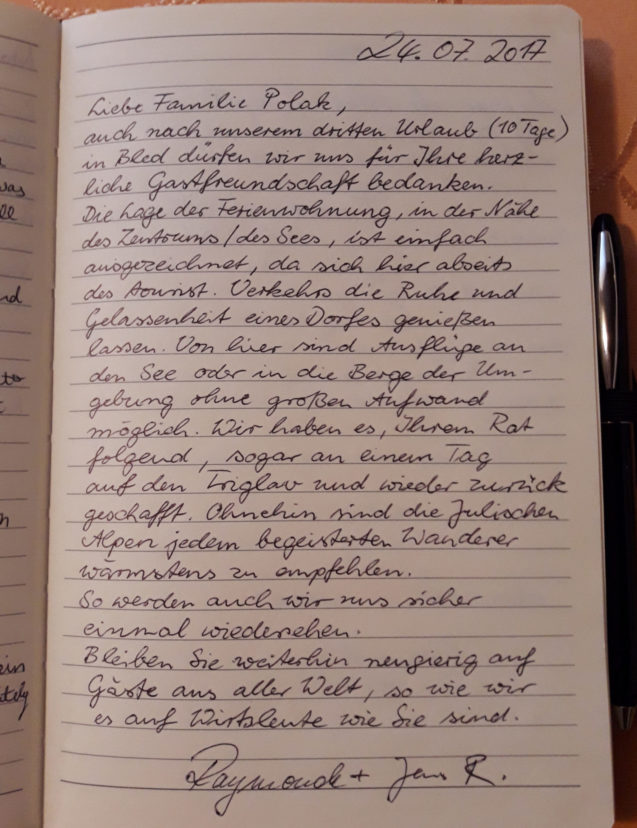 24.07.2017
Liebe Familie Polak,
auch nach unserem dritten Urlaub (10 Tage)
in Bled dürfen wir uns für Ihre herz-
liche Gastfreundschaft bedanken.
Die Lage der Ferienwohnung, in der Nähe
des Zentrums/des Sees, ist einfach
ausgezeichnet, da sich hier abseits
des Tourist. Verkehrs die Ruhe und
Gelassenheit eines Dorfes genießen
lassen. Von hier sind Ausflüge an
den See oder in die Berge der Um-
gebung ohne großen Aufwand
möglich. Wir haben es, Ihrem Rat
folgend, sogar an einem Tag
auf den Triglav und wieder zurück
geschafft. Ohnehin sind die Julischen
Alpen jedem begeisterten Wanderer
wärmstens zu empfehlen.
So werden auch wir uns sicher
einmal wiedersehen.
Bleiben Sie weiterhin neugierig auf
Gäste aus aller Welt, so wie wir
es auf Wirtsleute wie Sie sind.
+ Jens R.